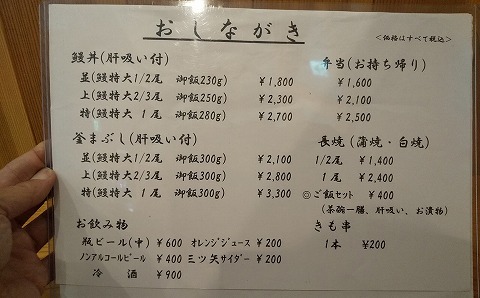 おしながき
<価格はすべて税込>
鰻丼(肝吸い付)
並(鰻特大1/2尾 御飯230g) ¥1,800
上(鰻特大2/3尾 御飯250g) ¥2,300
特(鰻特大 1尾 御飯280g) ¥2,700
釜まぶし(肝吸い付)
並(鰻特大1/2尾 御飯300g) ¥2,100
上(鰻特大2/3尾 御飯300g) ¥2,800
特(鰻特大 1尾 御飯300g) ¥3,300
お飲み物
瓶ビール(中) ¥600 オレンジジュース ¥200
ノンアルコールビール ¥400 三ツ矢サイダー ¥200
冷酒 ¥900
弁当(お持ち帰り)
¥1,600
¥2,100
¥2,500
長焼(蒲焼・白焼)
1/2尾 ¥1,400
1尾 ¥2,400
◎ご飯セット ¥400
(茶碗一膳、肝吸い、お漬物)
きも串
1本 ¥200